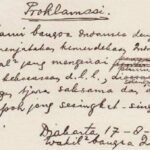 Proklamasi.
ami bangsa Indonesia den
menjatakan kemerdekaan Indo
al² jang mengenai
kekoeasaan d.l.l., dis
gan tjara saksama dan d
poh jang sesingkat-singk
Djakarta 17-8-
Wakil² bangsa In